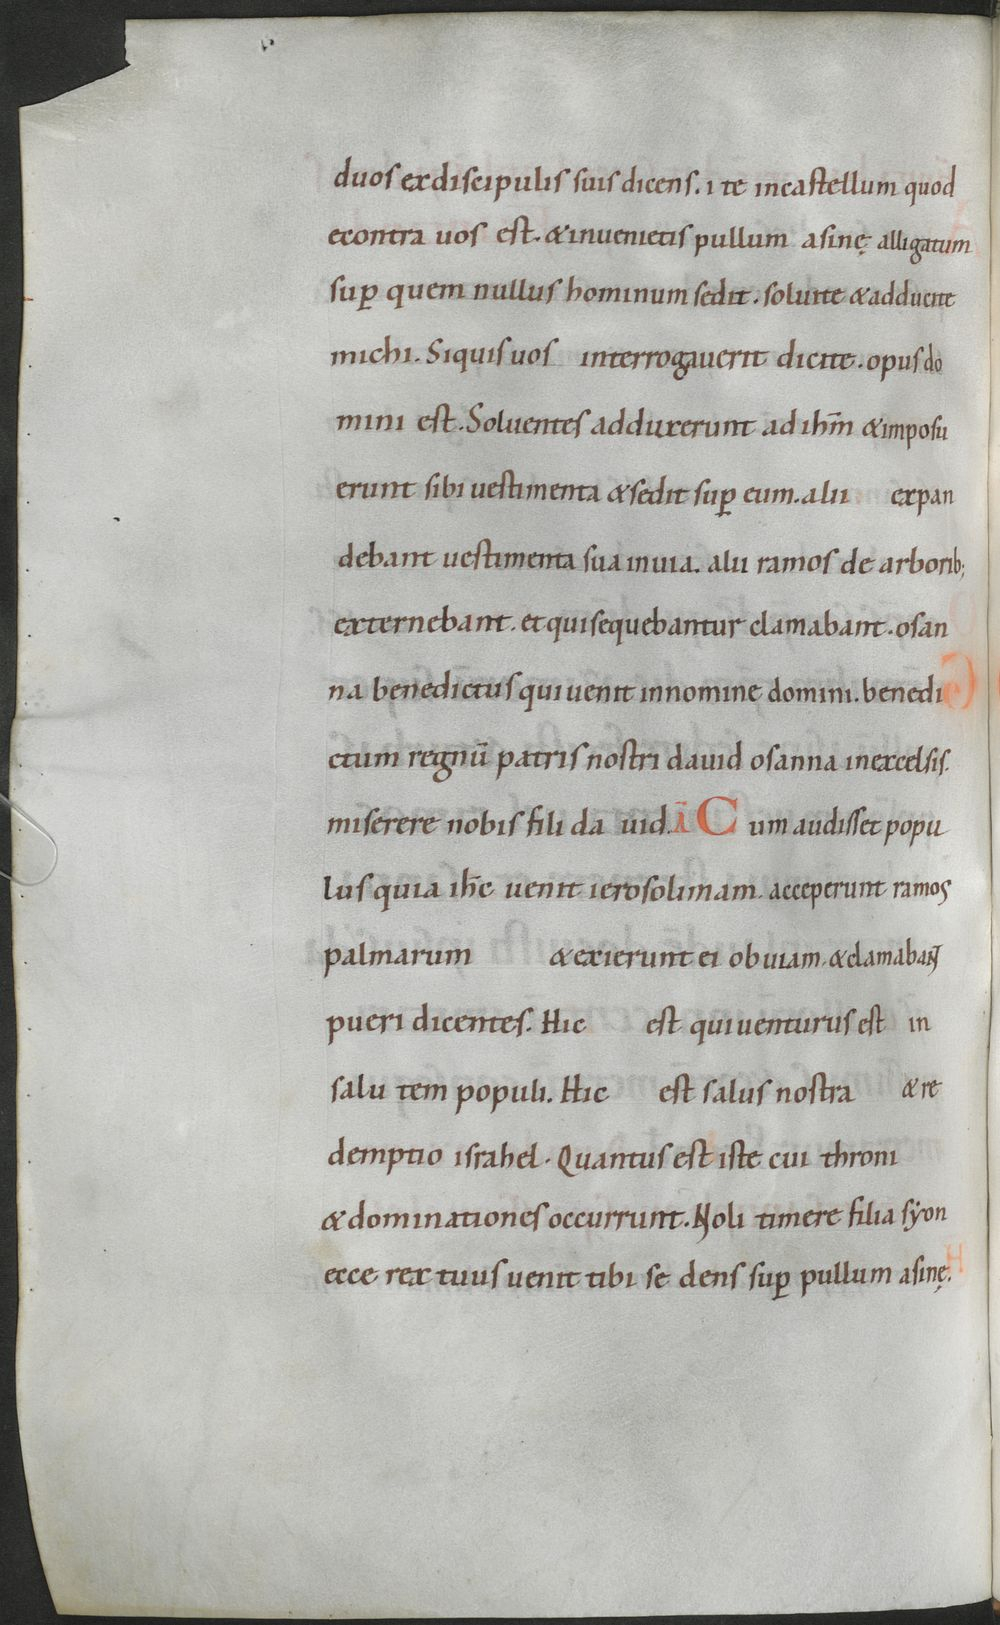 duos ex discipulis suis dicens. i te incastellum quod
econtra uos est. & inuenietis pullum asinę alligatum
sup̄ quem nullus hominum sedit. soluite & adducite
michi. Siquis uos interrogauerit dicite. opus do
mini est. Soluentes adduxerunt ad ihm̄ & imposu
erunt sibi uestimenta & sedit sup̄ eum. alii expan
debant uestimenta sua inuia. alii ramos de arborib;
externebant. et qui sequebantur clamabant. osan
na benedictus qui uenit innomine domini. benedi
ctum regnū patris nostri dauid osanna inexcelsis.
miserere nobis fili da uid. ī Cum audisset popu
lus quia ihc̄ uenit ierosolimam. acceperunt ramos
palmarum & exierunt ei obuiam. & clamabant
pueri dicentes. Hic est qui uenturus est in
salu tem populi. Hic est salus nostra & re
demptio israhel. Quantus est iste cui throni
& dominationes occurrunt. Noli timere filia sẏon
ecce rex tuus uenit tibi se dens sup̄ pullum asinę.